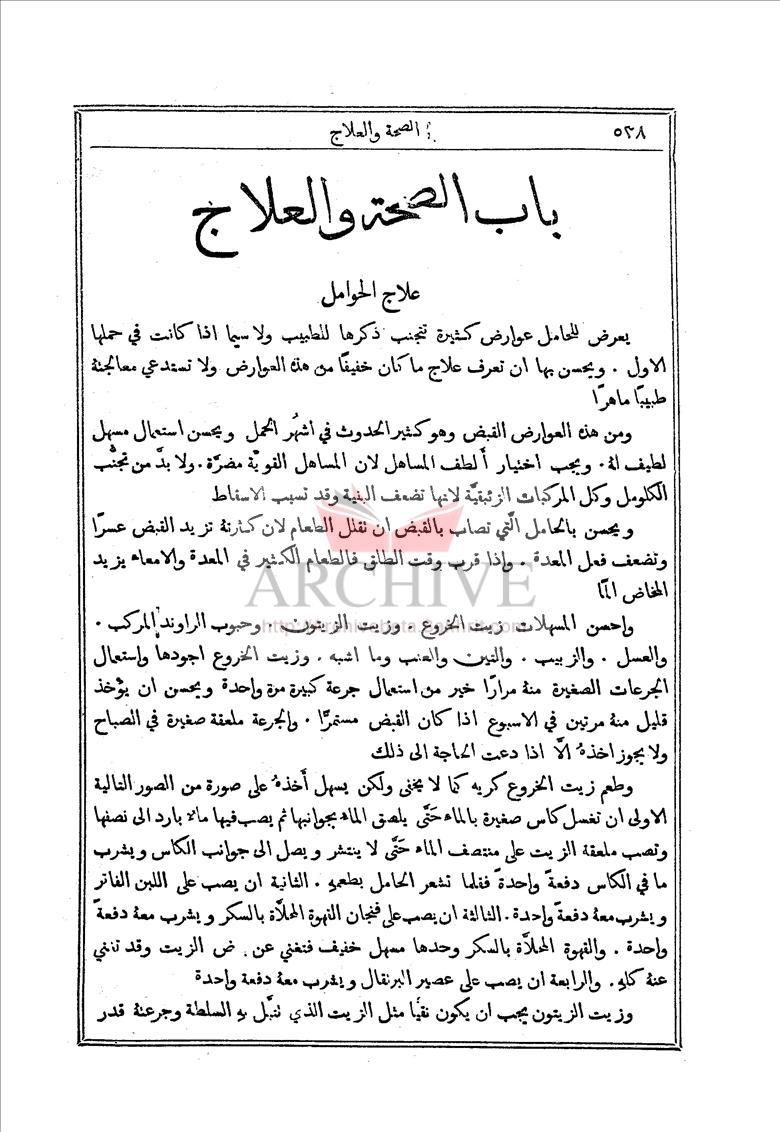 ٥٣٨
الصحة والعلاج
باب الصحة والعلاج
علاج الحوامل
يعرض للحامل عوارض كثيرة تتجنب ذكرها للطبيب ولا سيما اذا كانت في حملها
الاول . ويحسن بها ان تعرف علاج ما كان خفيفًا من هذه العوارض ولا تستدعي معالجتهُ
طبيبًا ماهرًا
ومن هذه العوارض القبض وهو كثير الحدوث في اشهُر الحمل ويحسن استعمال مسهل
لطيف لهُ . ويجب اختيار أَلطف المساهل لان المساهل القويَّة مضرَّة . ولا بدَّ من تجنُّب
الكلومل وكل المركبات الزئبقيَّة لانها تضعف البنية وقد تسبب الاسقاط
ويحسن بالحامل الَّتي تصاب بالقبض ان تقلل الطعام لان كثرتهُ تزيد القبض عسرًا
وتضعف فعل المعدة . واذا قرب وقت الطلق فالطعام الكثير في المعدة والامعاء يزيد
المخاض المًا
واحسن المسهلات زيت الخروع . وزيت الزيتون . وحبوب الراوند المركب .
والعسل . والزبيب . والتين والعنب وما اشبه . وزيت الخروع اجودها واستعمال
الجرعات الصغيرة منهُ مرارًا خير من استعمال جرعة كبيرة مرة واحدة ويحسن ان يؤخذ
قليل منهُ مرتين في الاسبوع اذا كان القبض مستمرًّا . والجرعة ملعقة صغيرة في الصباح
ولا يجوز اخذهُ الَّا اذا دعت الحاجة الى ذلك
وطعم زيت الخروع كريه كما لا يخفى ولكن يسهل أَخذهُ على صورة من الصور التالية
الاولى ان تغسل كاس صغيرة بالماء حَتَّى يلصق الماء بجوانبها ثم يصب فيها ماء بارد الى نصفها
وتصب ملعقة الزيت على منتصف الماء حَتَّى لا ينتشر ويصل الى جوانب الكاس ويشرب
ما في الكاس دفعةً واحدةً فقلما تشعر الحامل بطعمهِ . الثانية ان يصب على اللبن الفاتر
ويشرب معهُ دفعةً واحدة . الثالثة ان يصب على فنجان القهوة المحلاَّة بالسكر ويشرب معهُ دفعةً
واحدة . والقهوة المحلاَّة بالسكر وحدها مسهل خفيف فتغني عن ض الزيت وقد تغني
عنهُ كلهِ . والرابعة ان يصب على عصير البرتقال ويشرب معهُ دفعة واحدة
وزيت الزيتون يجب ان يكون نقيًّا مثل الزيت الذي تتبَّل بهِ السلطة وجرعتهُ قدر
ARCHIVE